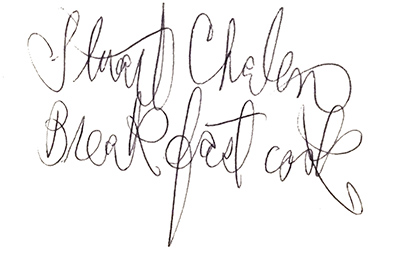 Stuart Chalen
Breakfast cook